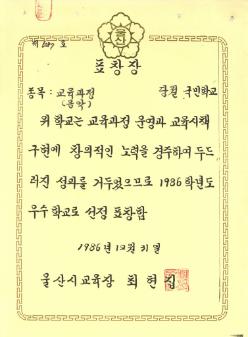 제 호
표창장
종목: 교육과정 국민학교
(음악)
위 학교는 교육과정 운영과 교육시책
구현에 창의적인 노력을 경주하여 두드
러진 성과를 거두었으므로 1986학년도
우수 학교로 선정 표창함
1986년 12월 31일
울산시교육장 최현집